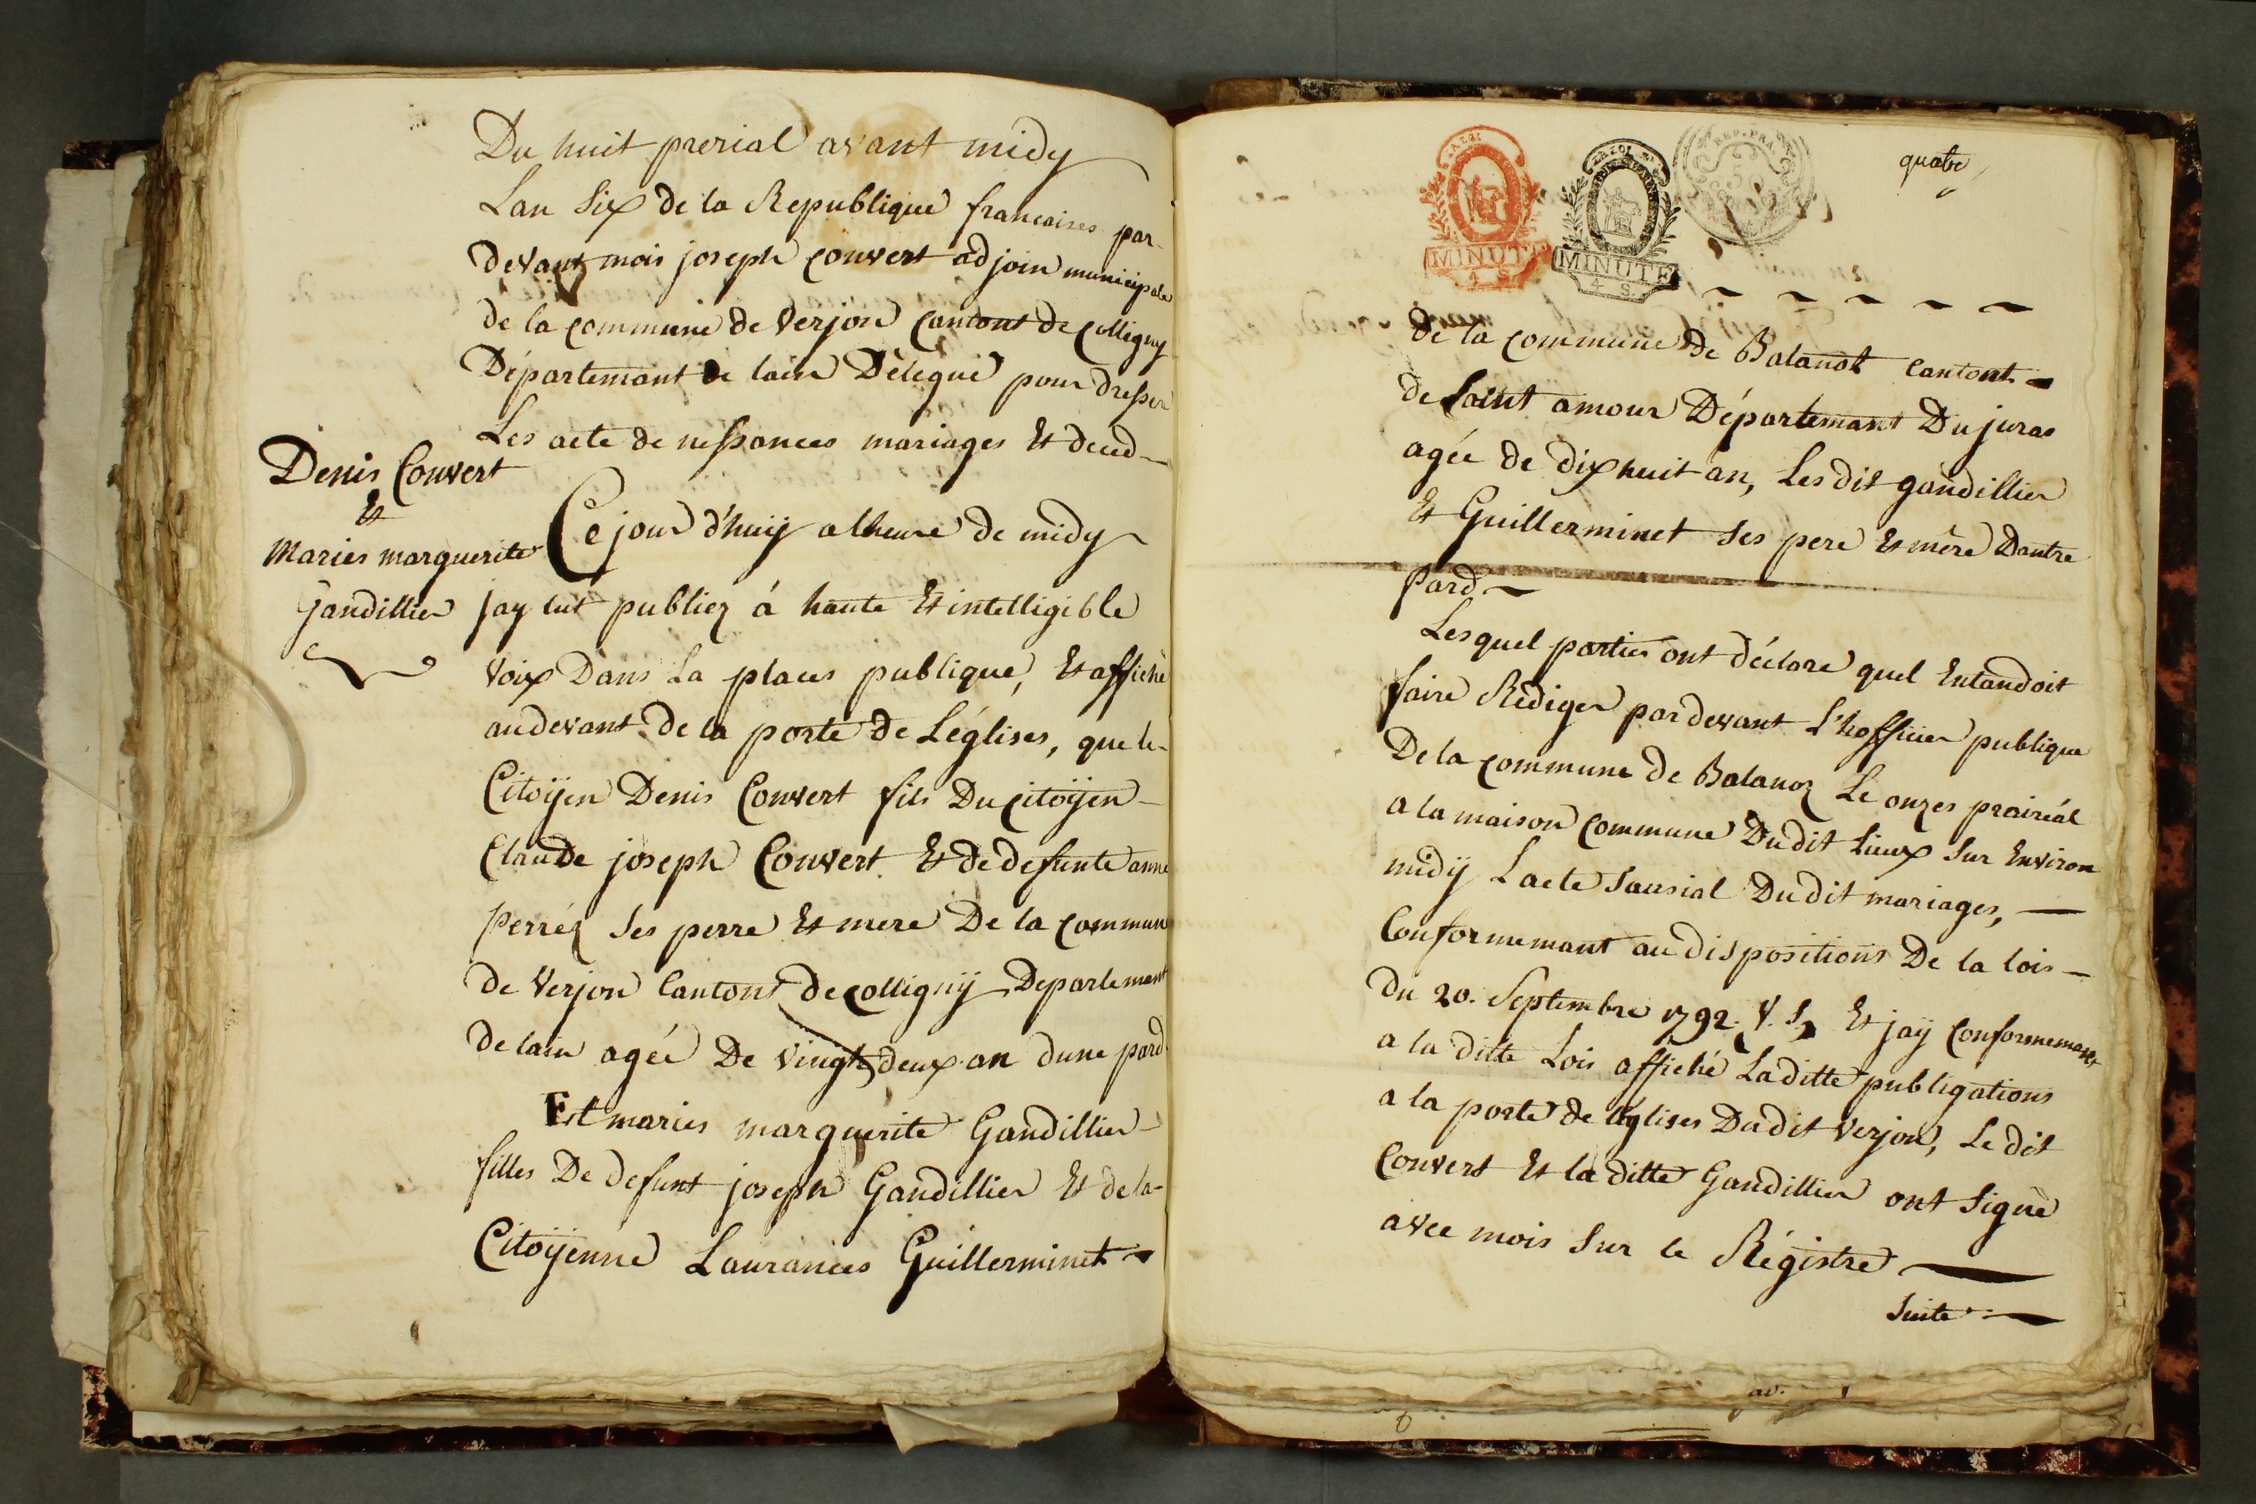 Du huit prerial avant midy
Lan Six de la Republique francaises par
devant mois joseph convert adjoin municipale
de la commune de Verjon Cantont de Colligny
Département de lain Délegué pour dresser
Les acte de nessances mariages Et deced
Denis Convert
Et
Maries marguerite
Gandillier
Ce jour d'huij a lheure de midy
jay lut publiez á haute Et intelligible
Voix Dans La places publique, Et affiché
au devant de la porte de Léglises, que le
Citoÿen Denis Convert fils Du Citoÿen
Claude joseph Convert Et de defunte anne
perréz Ses perre Et mere De la commune
de Verjon Cantont de colligny Departemant
de lain agée De Vingt deux an dune pard
Et maries marguerite Gandillier
filles De defunt joseph Gandillier Et de la
Citoÿenne Laurances Guillerminet
quatre
REP. FRA.
MINUTE
4 S.
MINUTE
4 S.
de la commune de Balanot cantont
de Saint amour Départemant Du juras
agée de dix huit an, Les dit gandillier
Et Guillerminet Ses pere Et mère Dautre
pard
Lesquel parties ont déclare quel Entandoit
faire Rediger par devant L'hofficier publique
De la commune de Balanoz Le onzes prairéal
a la maison commune Dudit Lieux Sur Environ
midÿ Lacte Sausial Dudit mariages,
Conformemant au dispositions De la lois
du 20. Septembre 1792. V. S. Et jaÿ Conformemant
a la ditte Lois affiché La ditte publigations
a la porte de léglises Dudit Verjon, Le dit
Convert Et la ditte Gandillier ont Signé
avec mois Sur le Régistre
Suite